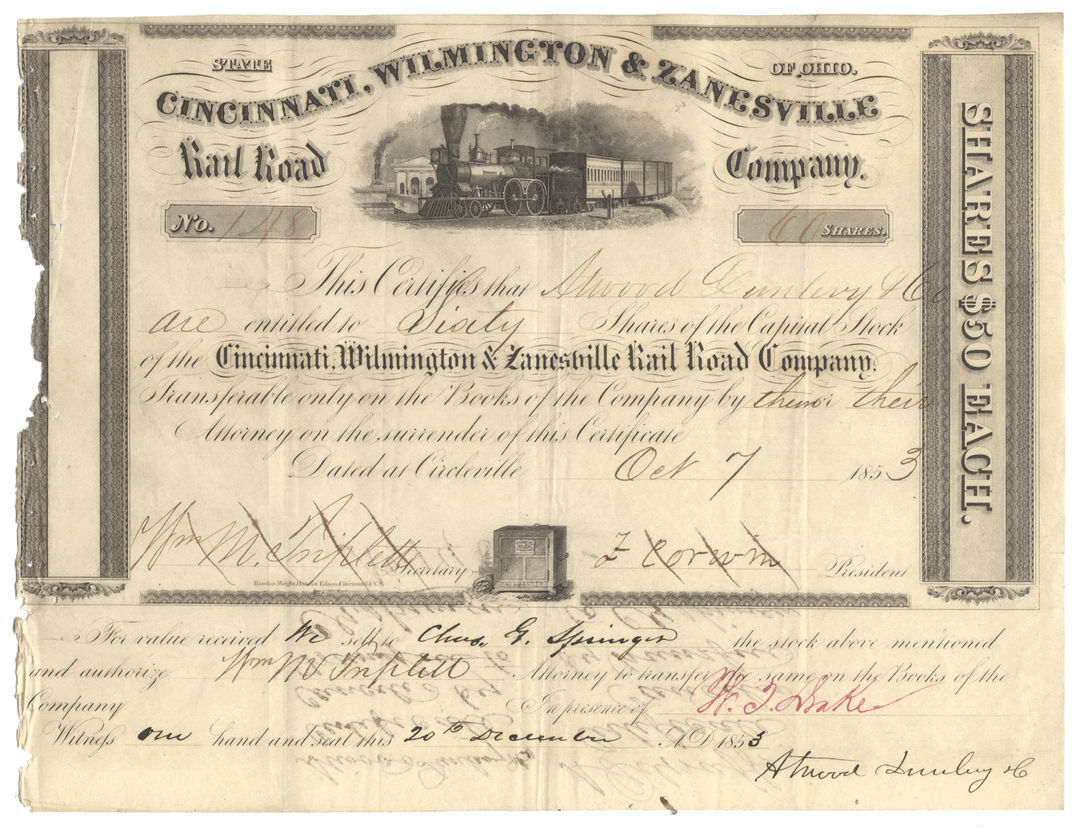 STATE OF OHIO.
CINCINNATI, WILMINGTON & ZANESVILLE
Rail Road Company.
No. 148 60 SHARES.
This Certifies that Atwood Dunlevy & Co
are entitled to Sixty Shares of the Capital Stock
of the Cincinnati, Wilmington & Zanesville Rail Road Company.
Transferable only on the Books of the Company by them or their
Attorney on the surrender of this Certificate
Dated at Circleville Oct 7 1853
Wm M. Triplett Secretary F Corwin President
Rawdon, Wright, Hatch & Edson, Cincinnati & N.Y.
SHARES $50 EACH.
For value received We sell to Chas. G. Springer the stock above mentioned
and authorize Wm M Triplett Attorney to transfer the same on the Books of the
Company In presence of W. T. Drake
Witness our hand and seal this 20th December A.D. 1853
Atwood Dunlevy & C